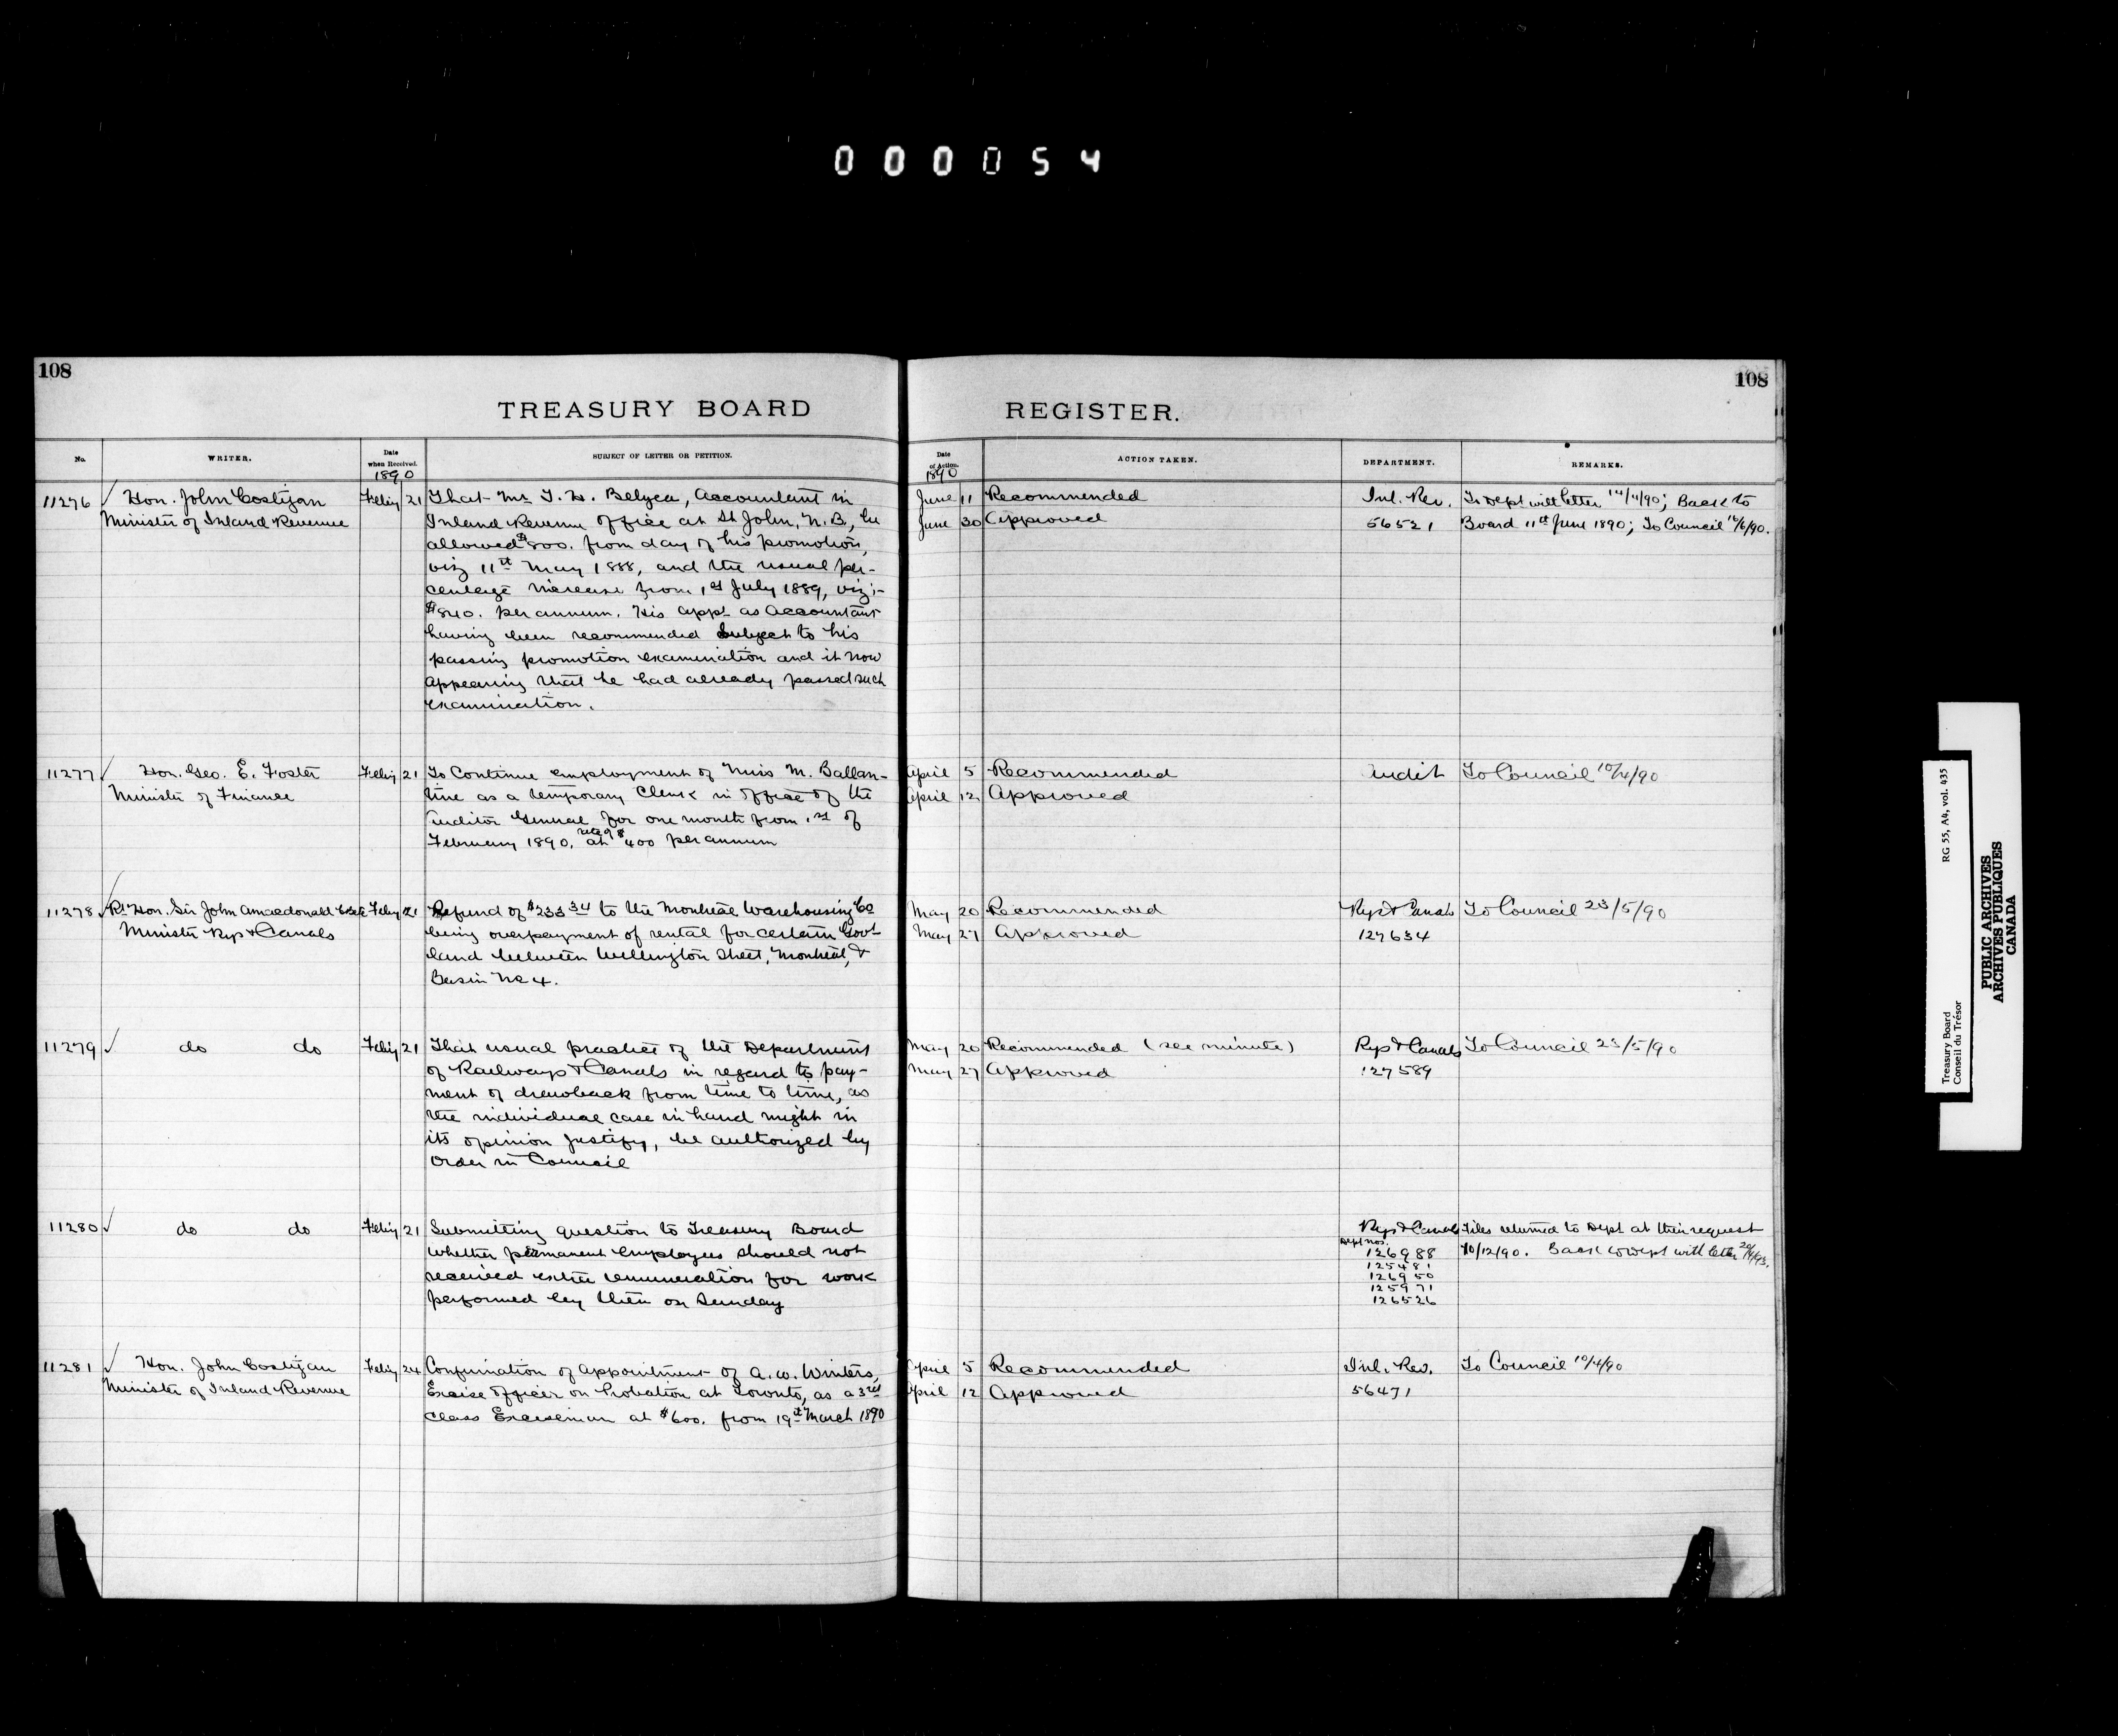 000054
108
108
TREASURY BOARD
REGISTER.
No.
WRITER.
Date when Received.
1890
SUBJECT OF LETTER OR PETITION.
Date of Action.
1890
ACTION TAKEN.
DEPARTMENT.
REMARKS.
11276 ✓ Hon. John Costigan
Minister of Inland Revenue
Feby 21
That Mr T. H. Belyea, Accountant in
Inland Revenue Office at St John, N.B., be
allowed $800. from day of his promotion,
viz 11th May 1888, and the usual per-
centage increase from 1st July 1889, viz:-
$840. per annum. His appt as Accountant
having been recommended subject to his
passing promotion examination and it now
appearing that he had already passed such
examination.
June 11 Recommended
June 30 Approved
Inl. Rev.
56521
To Dept with letter 14/4/90; Back to
Board 11th June 1890; To Council /6/90.
11277 ✓ Hon. Geo. E. Foster
Minister of Finance
Feby 21
To Continue employment of Miss M. Ballan-
tine as a temporary Clerk in Office of the
Auditor General for one month from 1st of
February 1890, at rate of $400 per annum
April 5 Recommended
April 12 Approved
Audit
To Council 10/4/90
11278 ✓ Rt Hon. Sir John A Macdonald
Minister Rys & Canals
Feby 21
Refund of $233.34 to the Montreal Warehousing Co
being overpayment of rental for certain Govt
land between Wellington Street, Montreal, &
Basin No 4.
May 20 Recommended
May 27 Approved
Rys & Canals
127634
To Council 23/5/90
11279 ✓ do do
Feby 21
That usual practice of the Department
of Railways & Canals in regard to pay-
ment of drawback from time to time, as
the individual case in hand might in
its opinion justify, be authorized by
Order in Council
May 20 Recommended (see minute)
May 27 Approved
Rys & Canals
127589
To Council 23/5/90
11280 ✓ do do
Feby 21
Submitting question to Treasury Board
whether permanent employees should not
received extra remuneration for work
performed by them on Sunday
Rys & Canals
Dept Nos.
126988
125481
126950
125971
126526
Files returned to Dept at their request
10/12/90. Back to Dept with letter
11281 ✓ Hon. John Costigan
Minister of Inland Revenue
Feby 24
Confirmation of appointment of A. W. Winters,
Excise Officer on Probation at Toronto, as a 3rd
Class Exciseman at $600. from 19th March 1890
April 5 Recommended
April 12 Approved
Inl. Rev.
56471
To Council 10/4/90
Treasury Board
Conseil du Trésor
RG 55, A4, vol. 435
PUBLIC ARCHIVES
ARCHIVES PUBLIQUES
CANADA